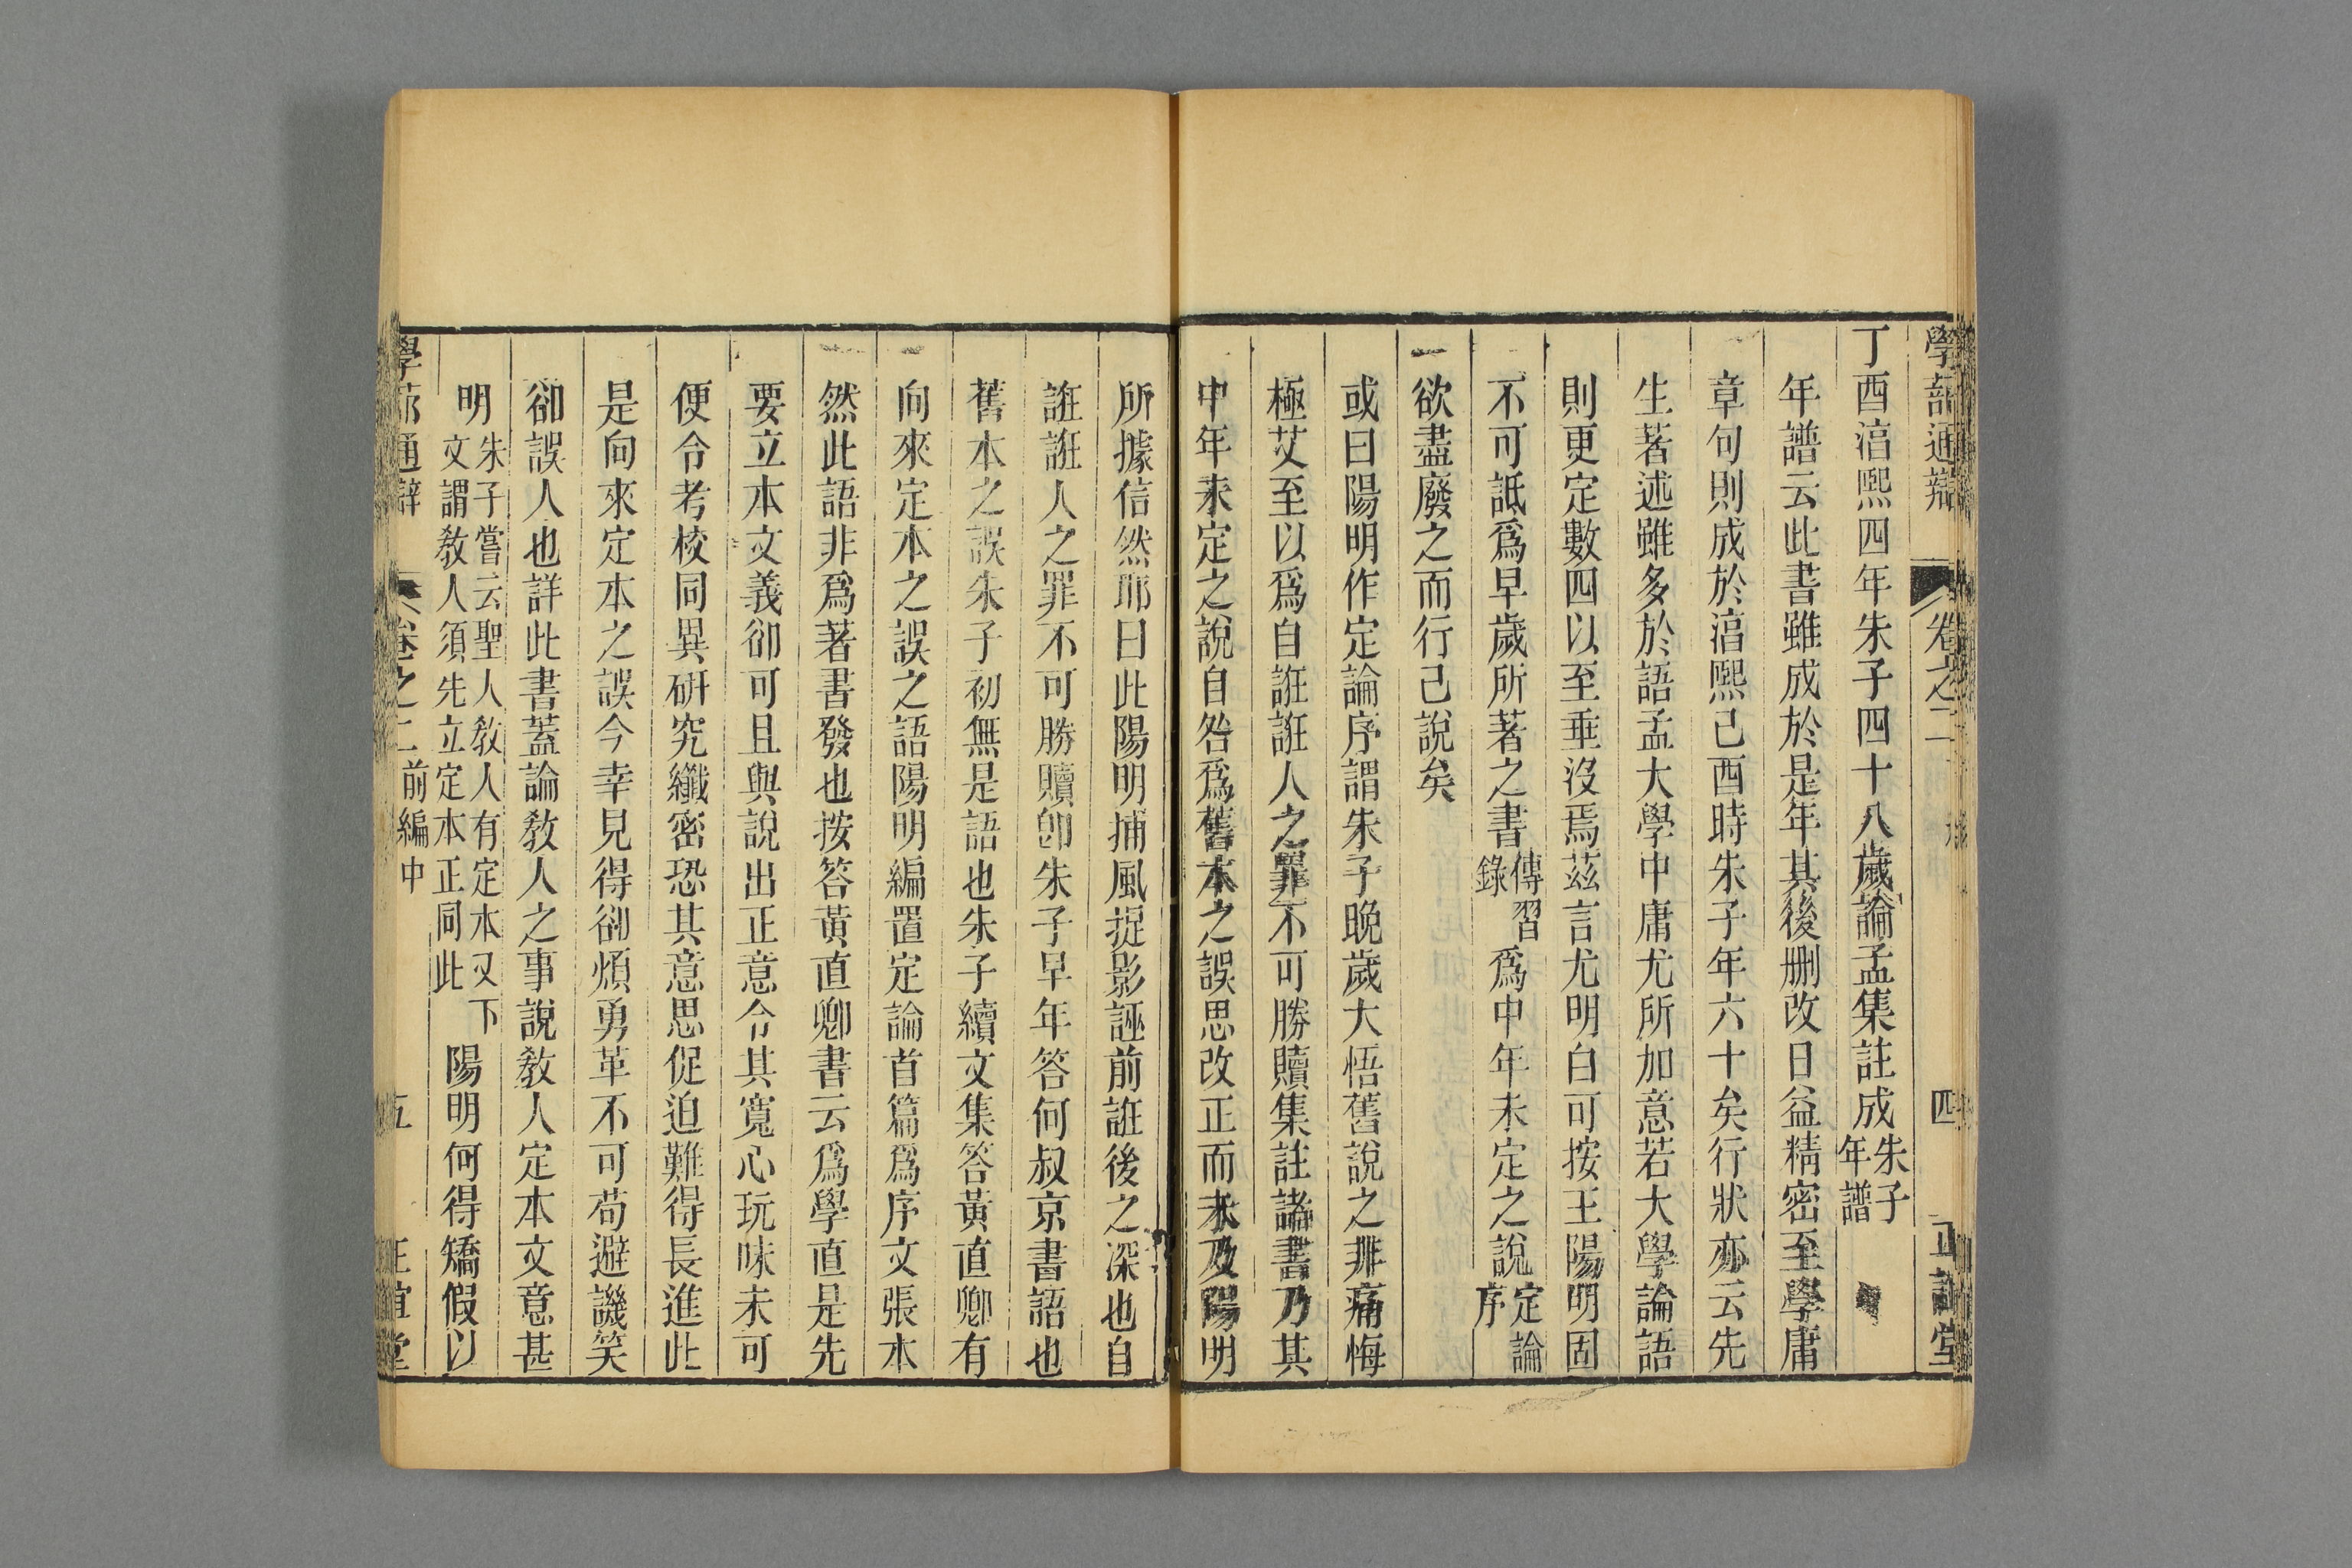 學蔀通辯 卷之二 四 正誼堂
丁酉湻熙四年朱子四十八歲論孟集註成朱子年譜
年譜云此書雖成於是年其後刪改日益精密至學庸
章句則成於湻熙己酉時朱子年六十矣行狀亦云先
生著述雖多於語孟大學中庸尤所加意若大學論語
則更定數四以至垂沒焉茲言尤明白可按王陽明固
不可詆爲早歲所著之書傳習錄爲中年未定之說定論序
一欲盡廢之而行己說矣
或曰陽明作定論序謂朱子晚歲大悟舊說之非痛悔
極艾至以爲自誑誑人之罪不可勝贖集註諸書乃其
中年未定之說自咎爲舊本之誤思改正而未及陽明
所據信然耶曰此陽明捕風捉影誣前誑後之深也自
誑誑人之罪不可勝贖卽朱子早年答何叔京書語也
舊本之誤朱子初無是語也朱子續文集答黃直卿有
向來定本之誤之語陽明編置定論首篇爲序文張本
然此語非爲著書發也按答黃直卿書云爲學直是先
要立本文義卻可且與說出正意令其寬心玩味未可
便令考校同異硏究纖密恐其意思促迫難得長進此
是向來定本之誤今幸見得卻煩勇革不可苟避譏笑
卻誤人也詳此書蓋論敎人之事說敎人定本文意甚
明朱子嘗云聖人敎人有定本又下文謂敎人須先立定本正同此陽明何得矯假以
學蔀通辯 卷之二前編中 五 正誼堂